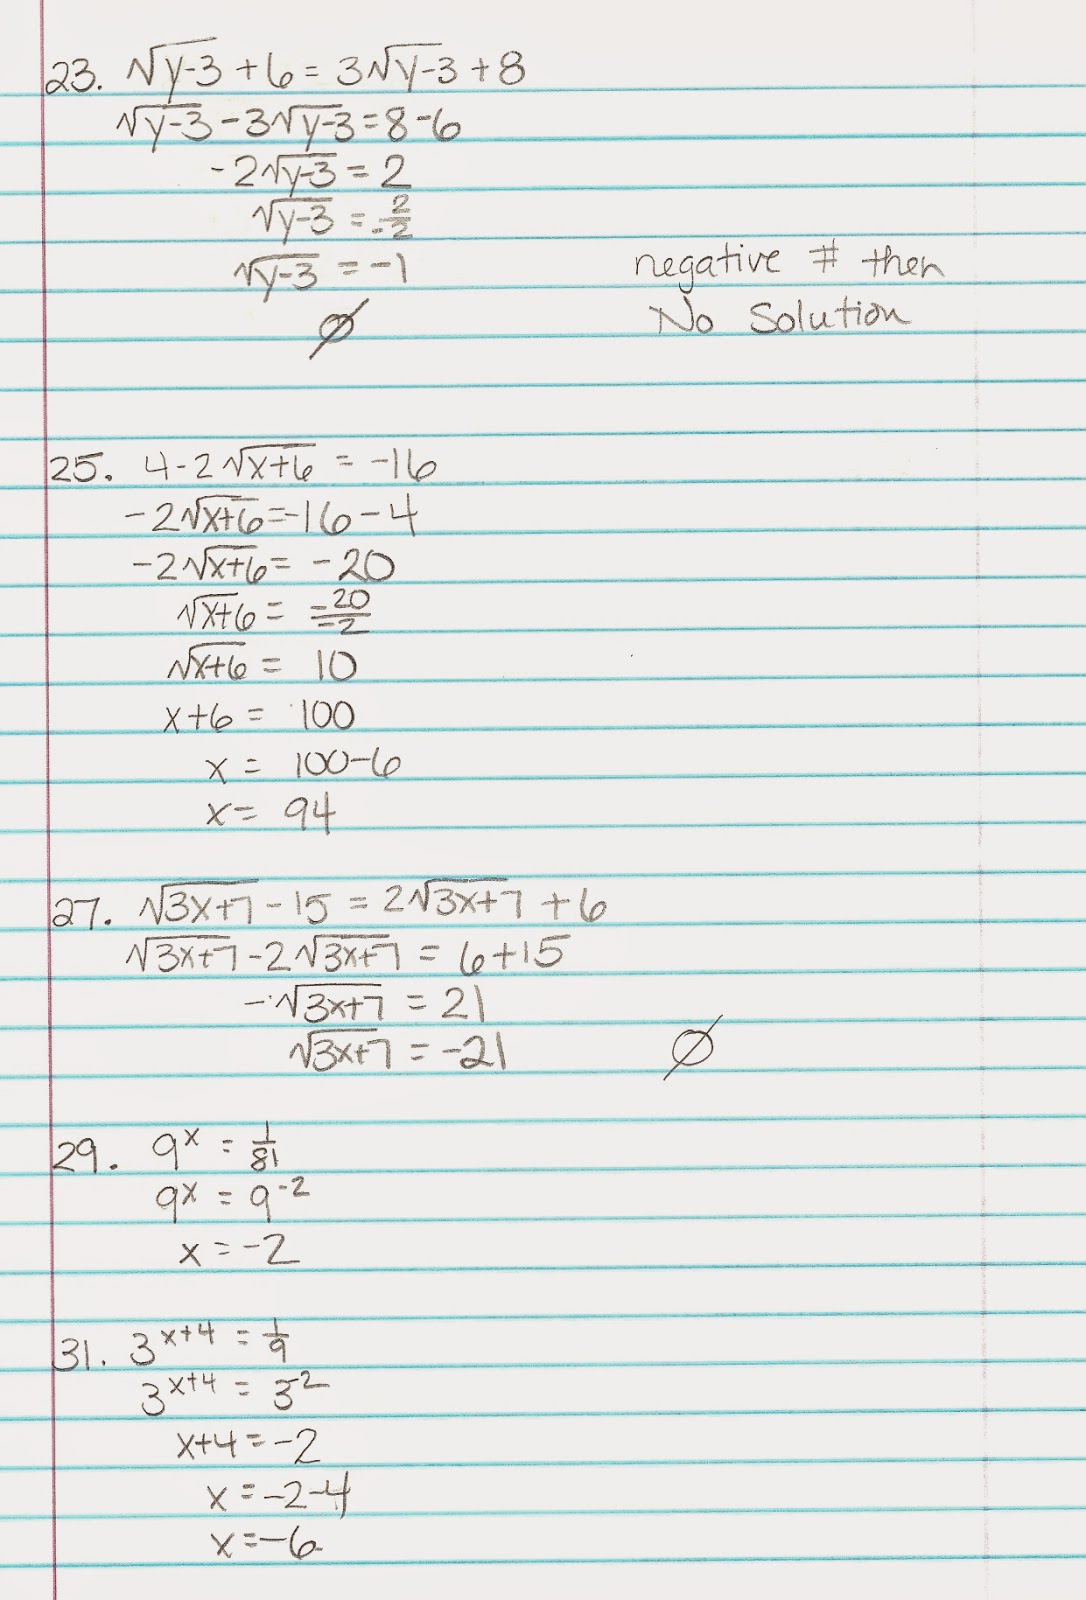 23. √y-3 + 6 = 3√y-3 + 8
√y-3 - 3√y-3 = 8 - 6
-2√y-3 = 2
√y-3 = -2/2
√y-3 = -1
negative # then
∅
No Solution
25. 4 - 2√x+6 = -16
-2√x+6 = -16 - 4
-2√x+6 = -20
√x+6 = -20/-2
√x+6 = 10
x+6 = 100
x = 100-6
x = 94
27. √3x+7 - 15 = 2√3x+7 + 6
√3x+7 - 2√3x+7 = 6+15
-√3x+7 = 21
√3x+7 = -21 ∅
29. 9^x = 1/81
9^x = 9^-2
x = -2
31. 3^x+4 = 1/9
3^x+4 = 3^-2
x+4 = -2
x = -2-4
x = -6